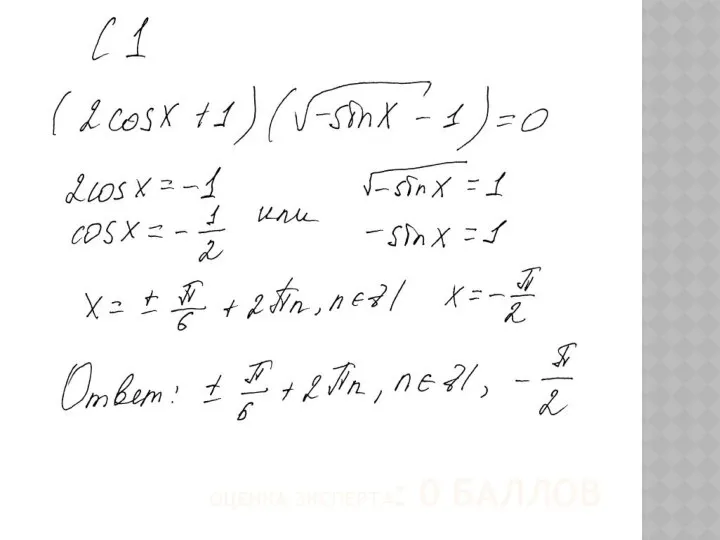 С 1
(2cosx + 1)(√-sinx - 1) = 0
2cosx = -1 или √-sinx = 1
cosx = - 1/2 -sinx = 1
x = ± π/6 + 2πn, n∈Z x = - π/2
Ответ: ± π/6 + 2πn, n∈Z, - π/2
ОЦЕНКА ЭКСПЕРТА: 0 БАЛЛОВ